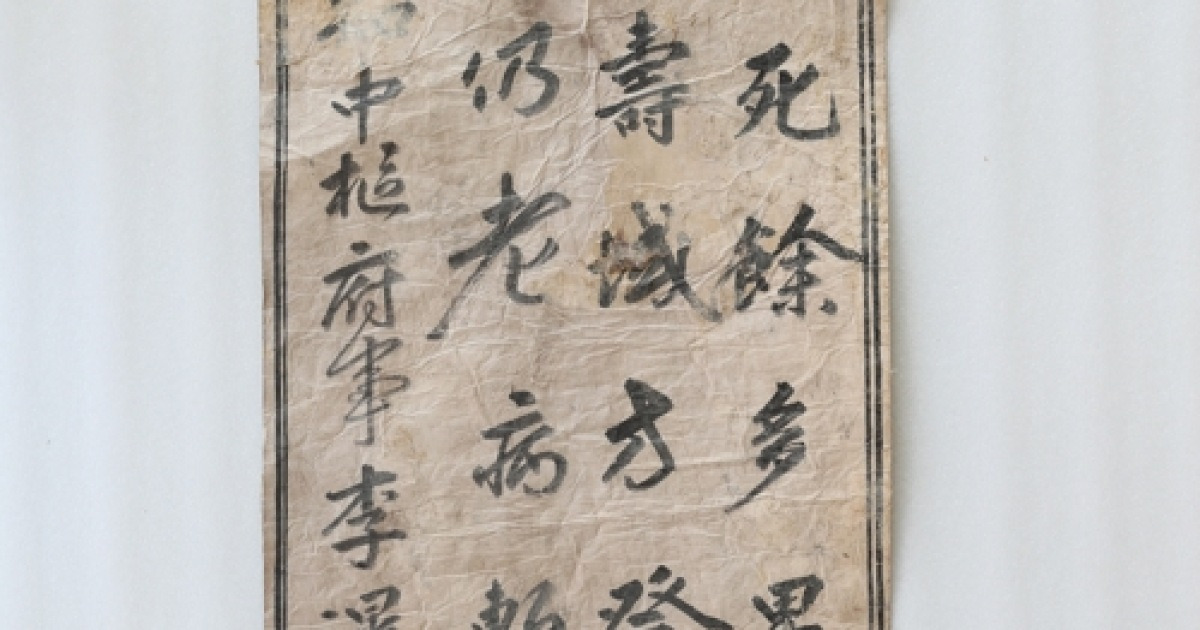 死餘多
壽域方登
仍老病
中樞府事李